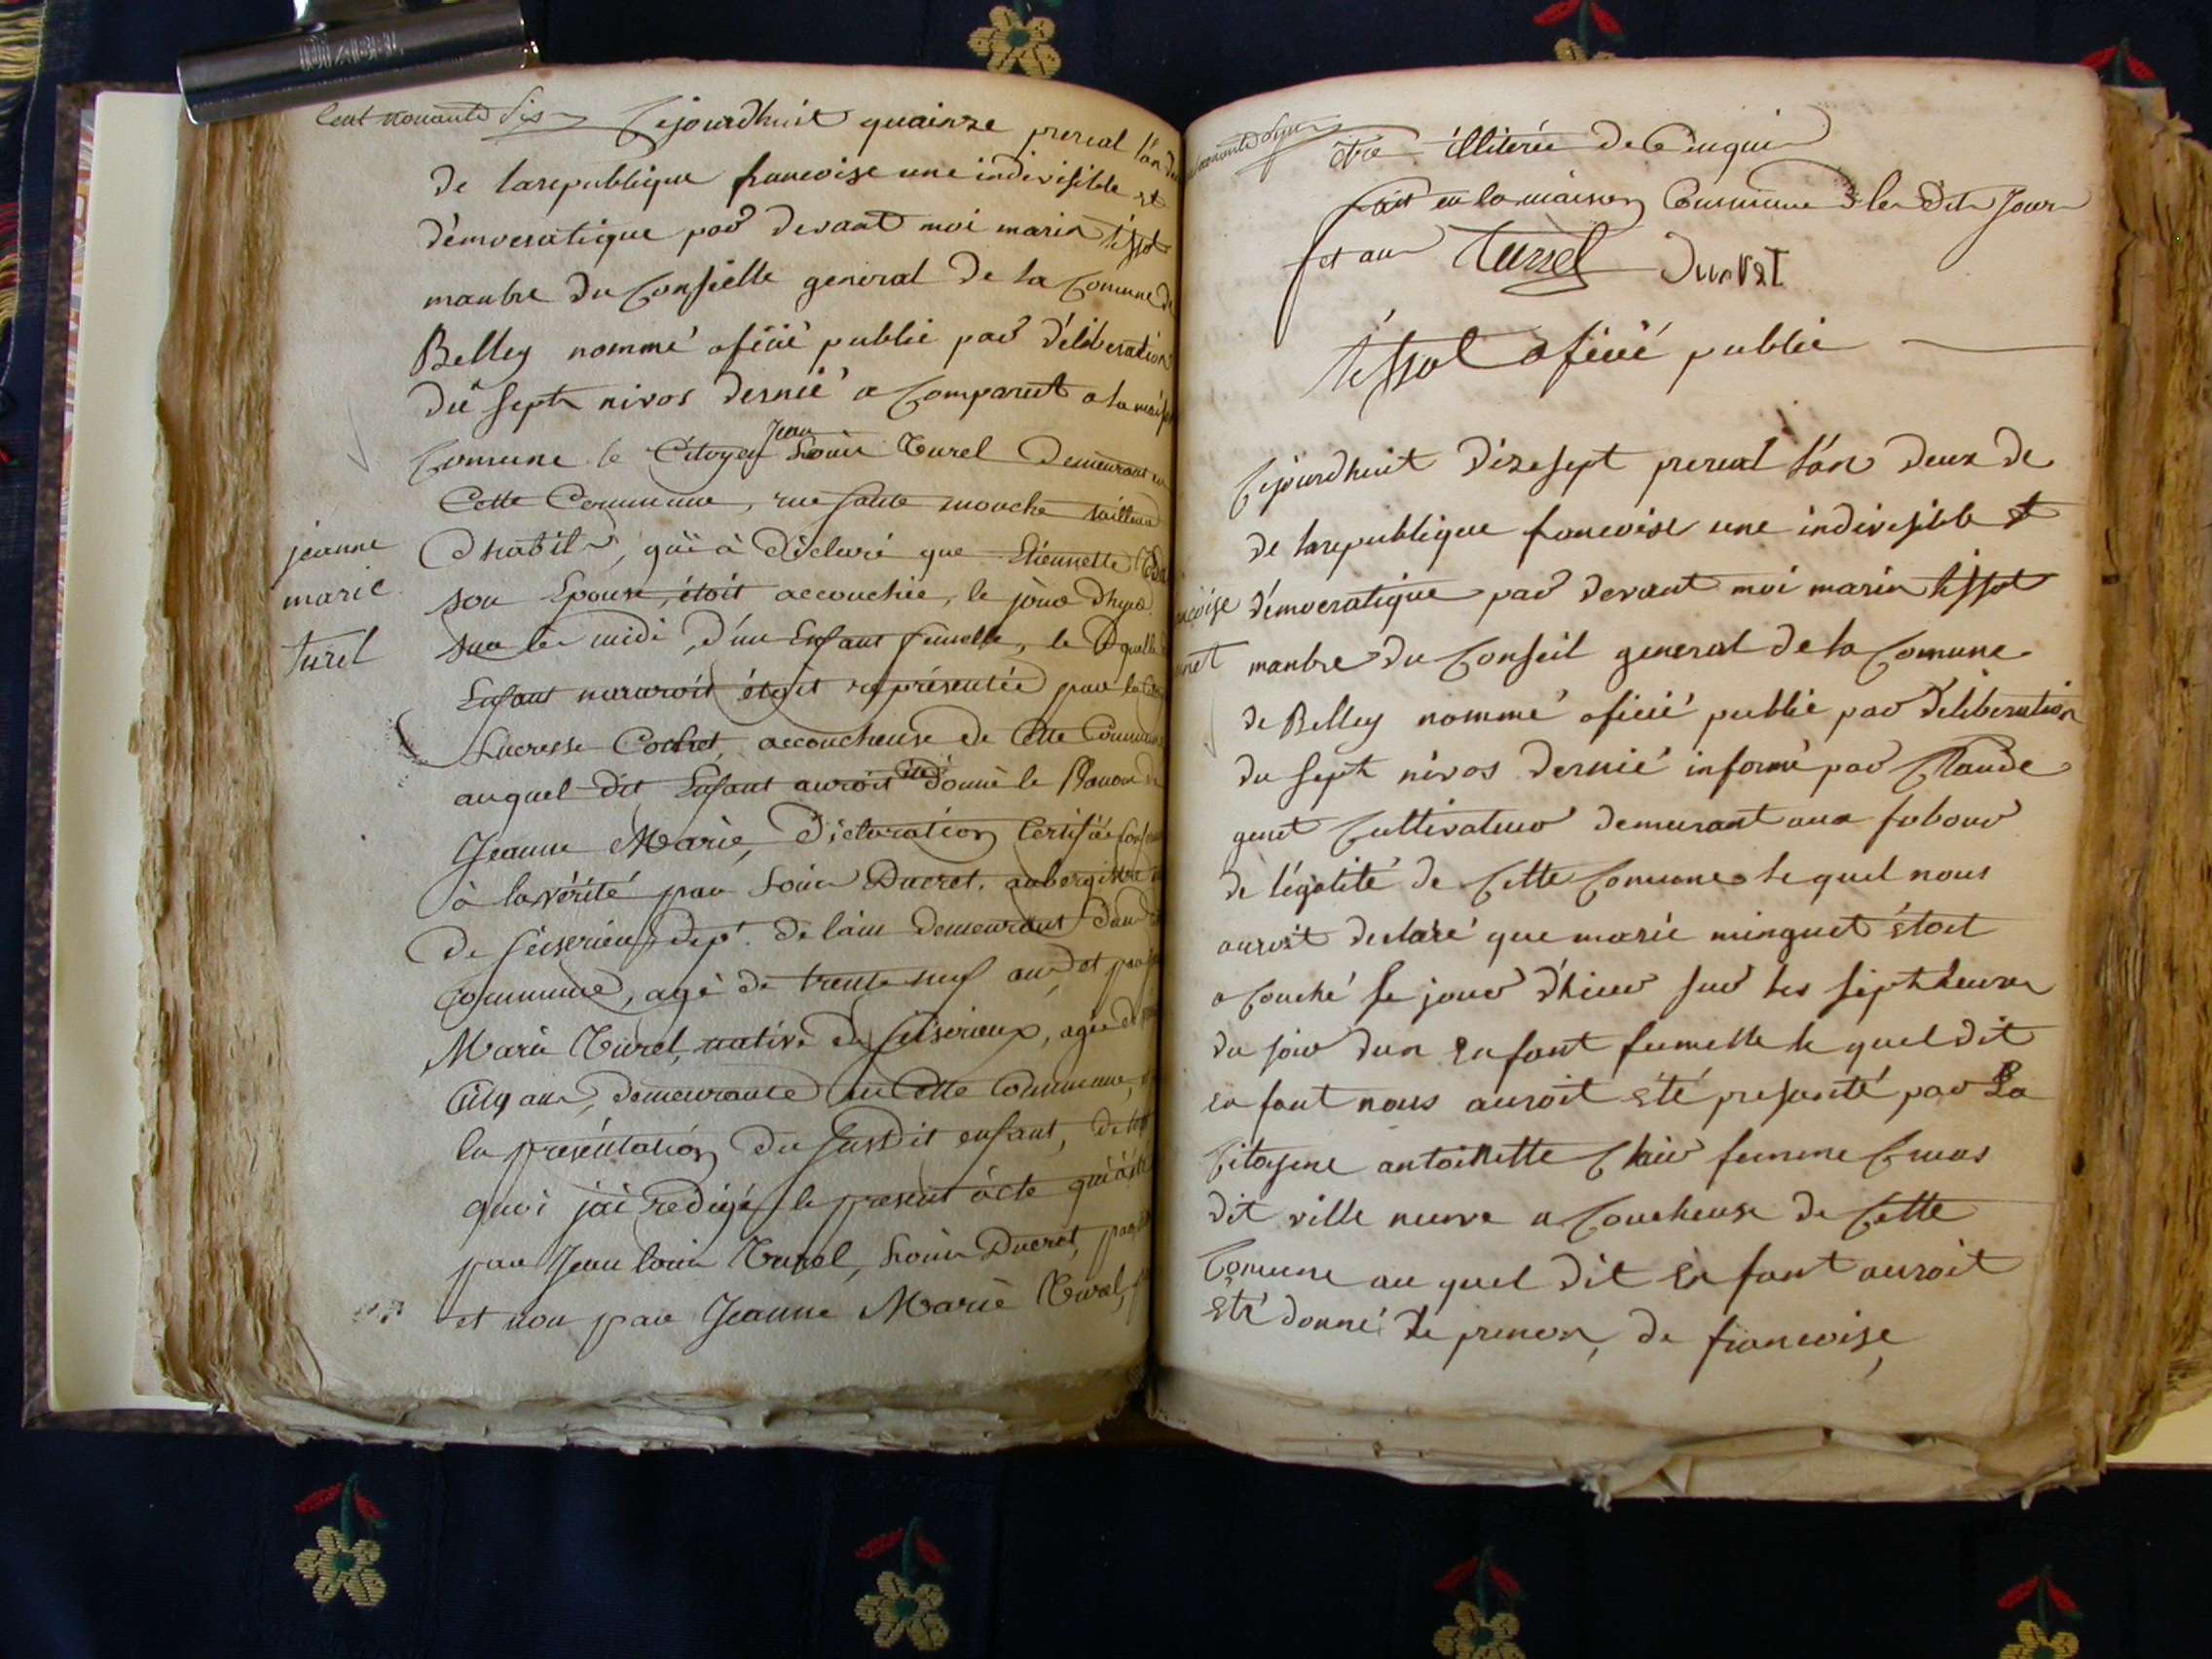 Cent nonante six
Cejourdhuit quainze prereal l'an
de larepublique francoise une indivisible et
démocratique par devant moi marin tissot
manbre du Consielle general de la Comune de
Belley nommé oficié public par déliberation
du sept nivos dernié a Comparut a la
Comune le Citoyen Jean Louis Turel Demeurant en
Cette Commune, rue sailleur
d'habits, qui à déclaré que Etiennette
son Epouse, étoit accouchée, le jour d'hyer
sur le midi, d'un Enfant fémelle, le
Enfant représentée par la
Lucresse Cochet, accoucheuse de Cette Commune
auquel dit Enfant auroit été donné le
Jeanne Marie, Déclaration Certifiée
à la vérité par Louis Ducret, aubergiste
de Ceiserieux, dept. de l'ain demeurant
Commune, agé de trente neuf ans, et par
Marie Turel, native de Ceiserieux, agée de
ans, demeurante en Cette Commune,
la présentation du susdit enfant, de
quoi j'ai redigé le present acte
par Jean louis Turel, Louis Ducret,
et non par Jeanne Marie Turel,
jeanne
marie
turel
être illiterée de Ce
fait en la maison Commune les dits Jour
et an Turrel Ducret
tissot oficié public
Cejourdhuit dizesept prereal l'an deux de
de larepublique francoise une indivisible et
démocratique par devant moi marin tissot
manbre du Conseil general de la Comune
de Belley nommé oficié public par déliberation
du sept nivos dernié informé par Claude
genet Cultivateur demeurant aux fobour
de légalité de Cette Comune le quel nous
auroit declaré que marie minguet étoit
a Couché le jour d'hier sur les sept heures
du soir dun enfant fumelle le quel dit
enfant nous auroit été presanté par La
Citoyene antoinette Clair femme
dit ville neuve a Coucheuse de Cette
Comune au quel dit enfant auroit
été donné le prenon, de francoise,